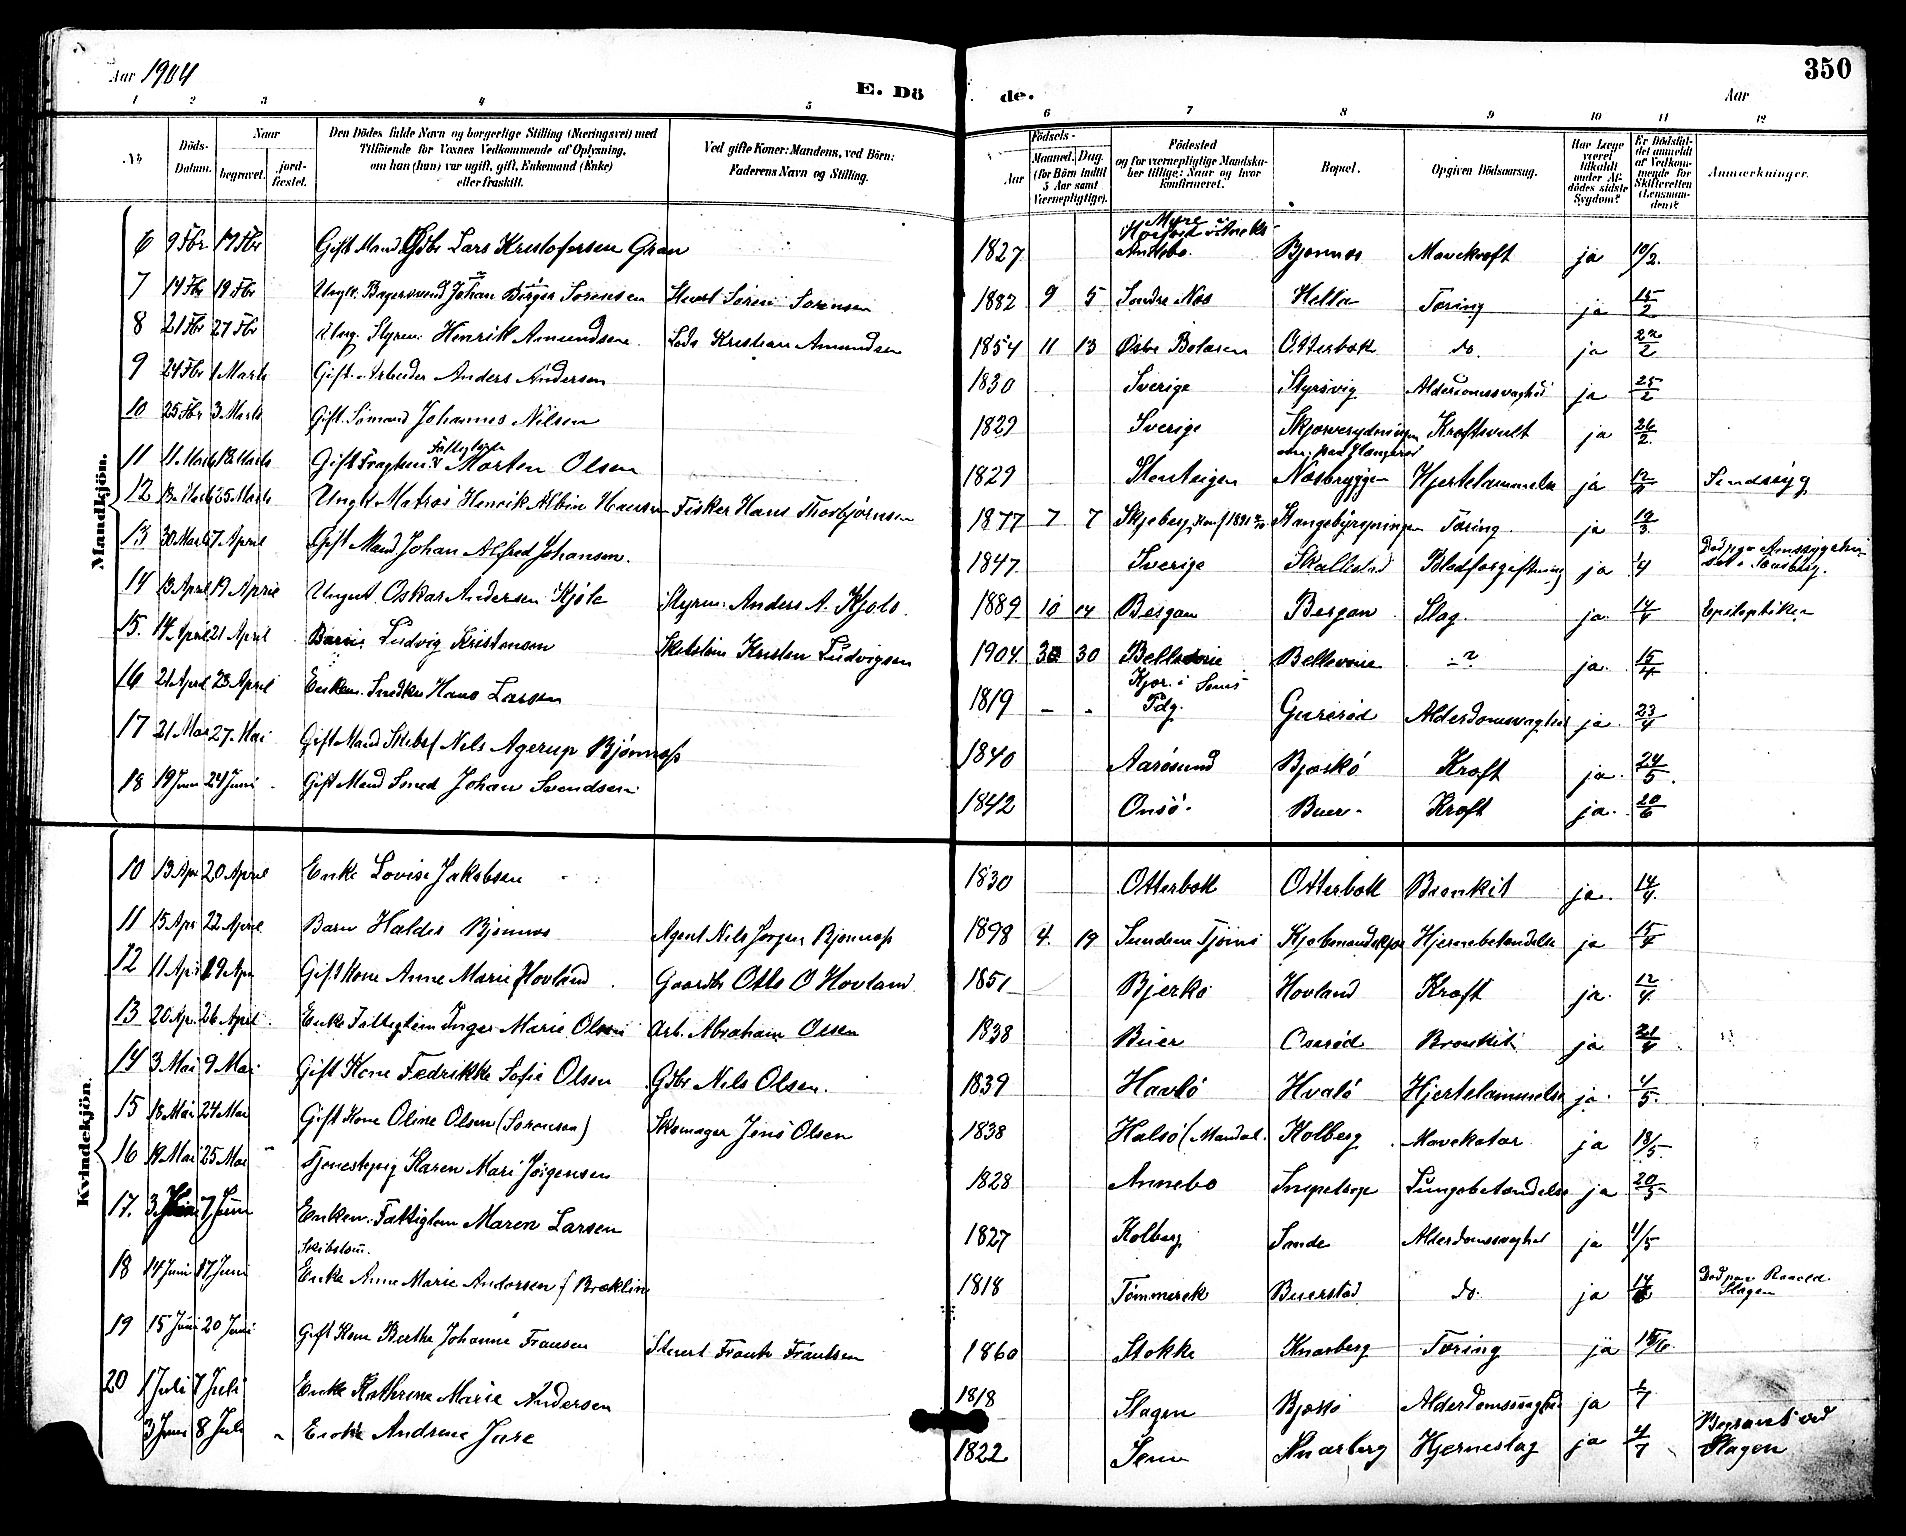 Aar 1904
E. Dö de.
350
Aar
1 2 3 4 5 6 7 8 9 10 11 12
No
Döds-Datum.
Naar
begravet.
jord-fæstet.
Den Dödes fulde Navn og borgerlige Stilling (Næringsvei) med Tilföiende for Voxnes Vedkommende af Oplysning, om han (hun) var ugift, gift, Enkemand (Enke) eller fraskilt.
Ved gifte Koner: Mandens, ved Börn: Faderens Navn og Stilling.
Födsels-
Aar
Maaned. Dag.
(for Börn indtil 5 Aar samt Værnepligtige).
Födested og for værnepligtige Mandskaber tillige: Naar og hvor konfirmeret.
Bopæl.
Opgiven Dödsaarsag.
Har Læge været tilkaldt under Afdödes sidste Sygdom?
Er Dödsfaldet anmeldt af Vedkommende for Skifteretten (Lensmanden)?
Anmærkninger.
Mandkjön.
6 9 Fbr 17 Fbr Gift Mand Gdbr Lars Kristofersen Gran 1827 Bjørnnes Mavekræft ja 10/2.
7 14 Fbr 19 Fbr Ungk. Johan Birger Sørensen Stuert Søren Sørensen 1882 9 5 Søndre Næs Hella Tæring ja 15/2
8 21 Fbr 27 Fbr Ung. Styrm. Henrik Amundsen Lods Kristian Amundsen 1854 11 13 Østre Bolæren Otterbæk do. ja 22/2
9 24 Fbr 1 Marts Gift. Arbeider Anders Andersen 1830 Sverige Styrsvig Alderdomssvaghed ja 25/2
10 25 Fbr 3 Marts Gift. Sømand Johannes Nilsen 1829 Sverige Kræftsvulst ja 26/2.
11 11 Marts 18 Marts Gift Morten Olsen 1829 Stenteigen Næsbryggen Hjertelammelse ja 12/ Sindssyg
12 18 Marts 25 Marts Ungk. Matros Henrik Albin Hansen Fisker Hans Thorbjørnsen 1877 7 7 Skjeberg, Konf 1891 Tæring. ja 19/3.
13 30 Marts 7 April Gift Mand Johan Alfred Johansen. 1847 Sverige Skallestad Blodforgiftning ja 1/4 Død paa Amtssygehuset i Tønsberg.
14 13 April 19 April Ungut Oskar Andersen Kjøle Styrm. Anders A. Kjøle. 1889 10 14 Bergan Bergan Slag. ja. 14/4 Epileptiker
15. 14 April 21 April Ludvig Kristensen Kristen Ludvigsen 1904. 30 30 Bellevue Bellevue - ? ja. 15/4
16 21 April 23 April Enkem. Snedker Hans Larsen 1819 - - Kjær i Sems Pdg. Gurerød Alderdomssvaghed ja. 23/4
17 21 Mai 27 Mai Gift Mand Skibsf Nils Agerup Bjønnæss 1840 Aarøsund Bjerkø Kræft ja. 24/5.
18 19 Juni 24 Juni Gift Mand Smed Johan Svendsen 1842 Onsø. Buer Kræft ja. 20/6
Kvindekjön.
10 13 Apr 20 April Enke Lovise Jakobsen 1830 Otterbæk Otterbæk Bronkit ja. 14/4.
11 15 Apr 22 April Barn Haldis Bjønnes Agent Nils Jørgen Bjønnæss 1898 4. 19 Sundene Tjømø Hjernebetændelse ja 15/4
12 11 Apr 19 Apr Gift Kone Anne Marie Hovland Gaardbr Otto O Hovland 1851 Bjerkø Hovland Kræft ja. 12/4.
13 20 Apr. 26 April Enke Fattiglem Inger Marie Olsen Arb. Abraham Olsen 1838 Buer Oserød Bronkit ja 21/4
14 3 Mai 9 Mai Gift Kone Fedrikke Sofie Olsen Gdbr Nils Olsen. 1839 Havlø Hvalø Hjertelammelse ja. 4/5.
15 18 Mai 24 Mai Gift Kone Oline Olsen (Sørensen) Skomager Jens Olsen 1838 Halsø (Mandal. Kolberg Mavekatar ja 18/5-
16 19 Mai 25 Mai Tjenestepig Karen Mari Jørgensen 1828 Annebo Snipetorp Lungebetændelse ja 20/5-
17. 3 Juni 7 Juni Enken. Fattiglem Maren Larsen 1827 Kolberg Sande Alderdomssvaghed ja 11/5
18 14 Juni 17 Juni Skibstøm. Enke Anne Marie Andersen f Bræklin 1818 Tømmerek Buerstad do. ja 14/6 Død paa Slagen
19 15 Juni 20 Juni Gift Kone Berthe Johanne Fransen Stuert Frants Frantsen 1860 Stokke Knarberg Tæring ja 15/6.
20 1 Juli 7 Juli Enke Kathrine Marie Andersen 1818 Slagen Alderdomssvaghed ja 1/7
3 Juni 8 Juli Enke Andrine Jare 1822 Sem Knarberg Hjerneslag ja 4/7 Begravet ved Slagen